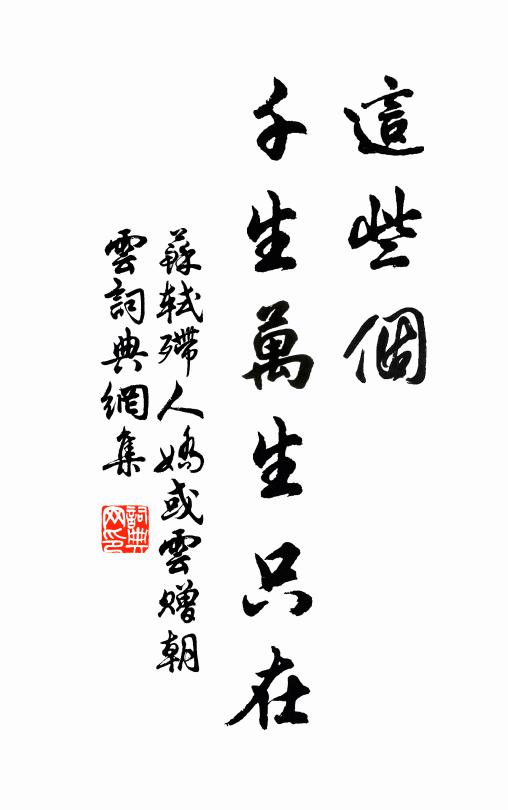 這些個
千生萬生只在
蘇軾殢人嬌或雲贈朝
雲詞典網集
詞典
网印